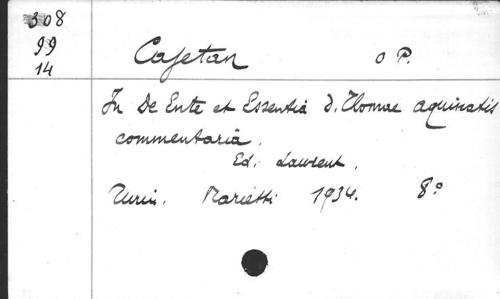 308
99
14
Cajetan O P.
In De Ente et Essentia d. Thomae Aquinatis
commentaria.
Ed. Laurent.
Turin. Marietti 1934. 8°